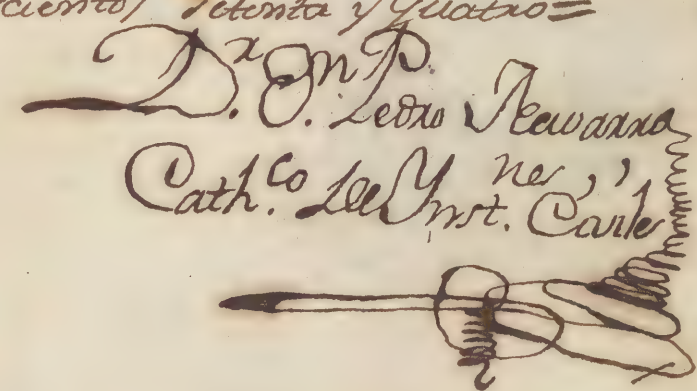 cientos setenta y quatro=
D.r D.n P. Pedro Navarro
Cath.co de Ynst.nes Carles